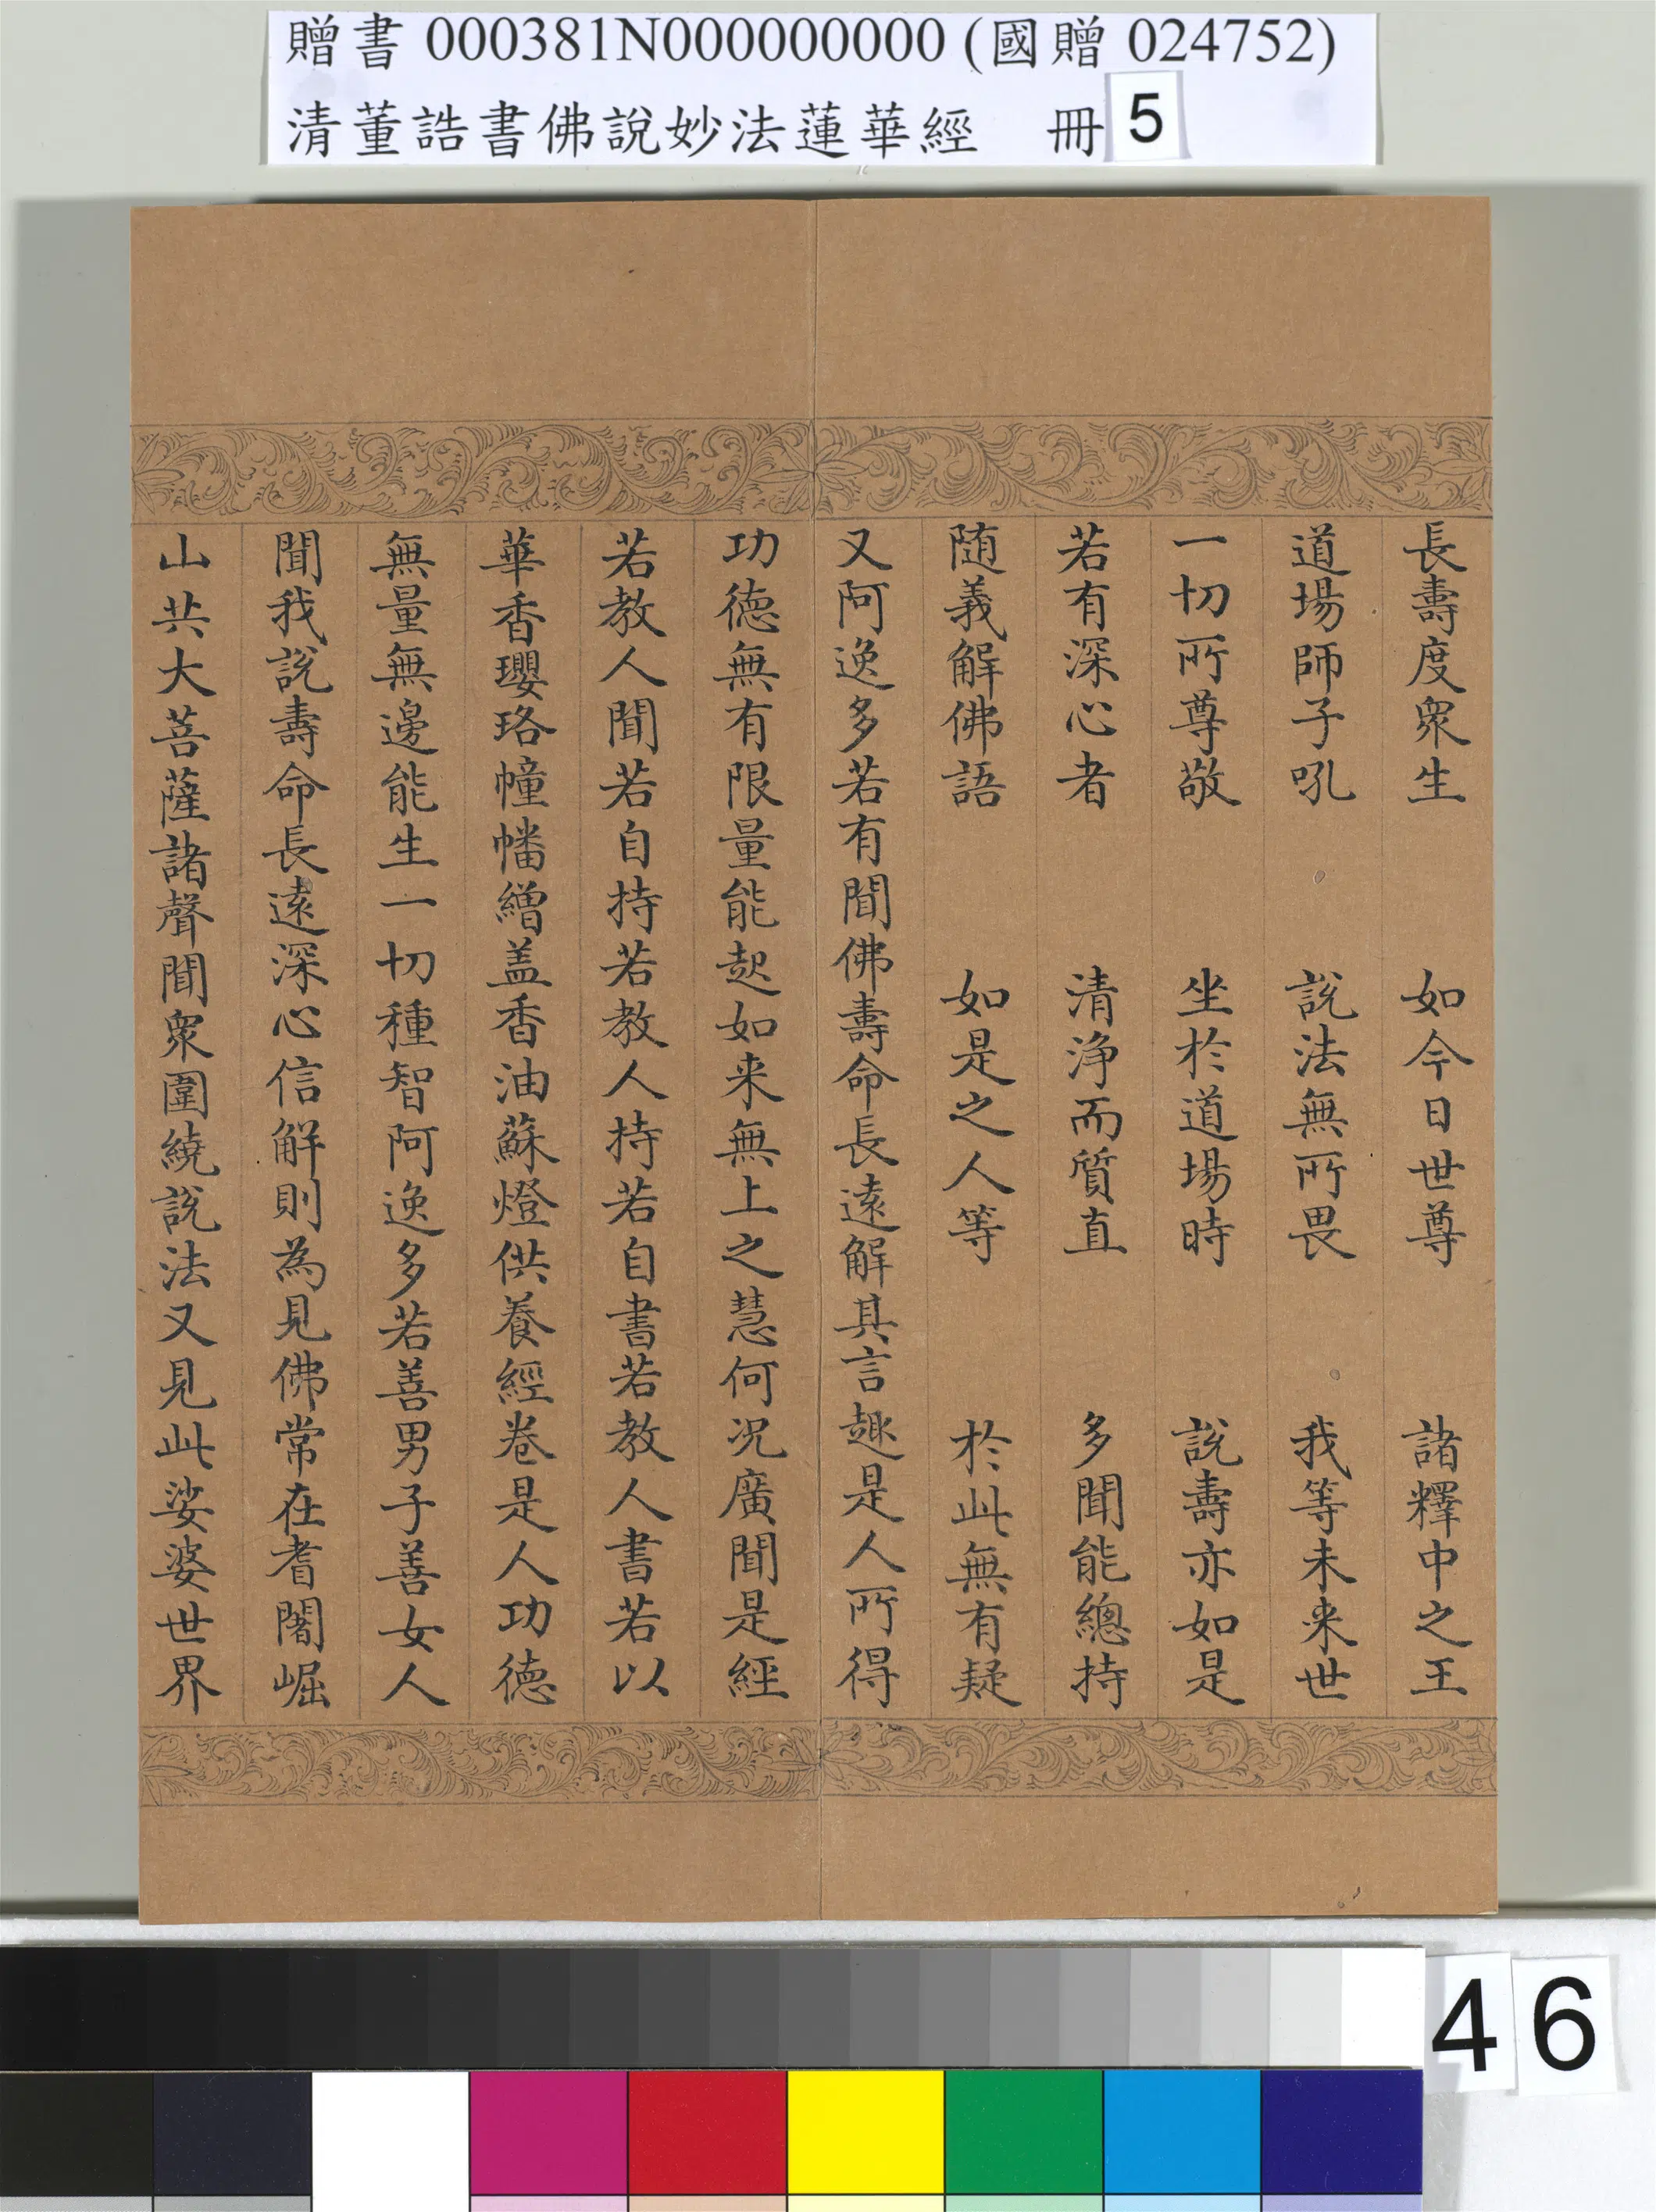 贈書 000381N000000000 (國贈 024752)
清董誥書佛說妙法蓮華經 冊 5
長壽度衆生 如今日世尊 諸釋中之王
道場師子吼 說法無所畏 我等未来世
一切所尊敬 坐於道場時 說壽亦如是
若有深心者 清淨而質直 多聞能總持
随義解佛語 如是之人等 於此無有疑
又阿逸多若有聞佛壽命長遠解其言趣是人所得
功德無有限量能起如来無上之慧何况廣聞是經
若教人聞若自持若教人持若自書若教人書若以
華香瓔珞幢幡繒盖香油蘇燈供養經卷是人功德
無量無邊能生一切種智阿逸多若善男子善女人
聞我說壽命長遠深心信解則為見佛常在耆闍崛
山共大菩薩諸聲聞衆圍繞說法又見此娑婆世界
46